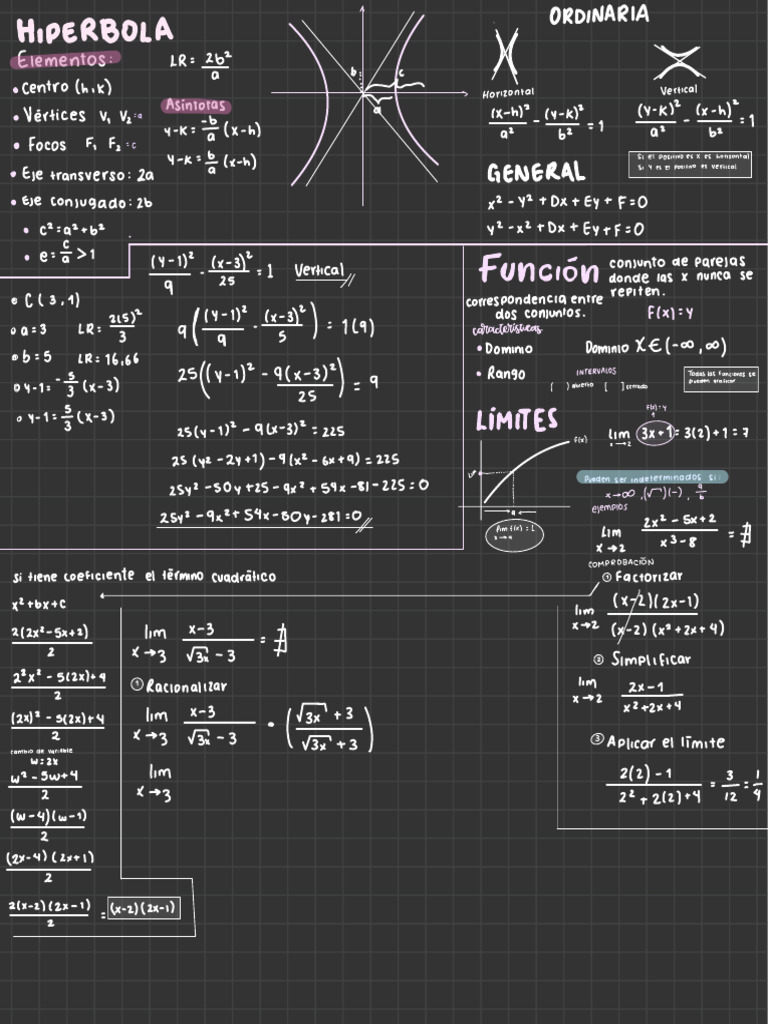 HIPERBOLA
Elementos:
• Centro (h,k)
• Vértices V₁ V₂ =a
• Focos F₁ F₂ =c
• Eje transverso: 2a
• Eje conjugado: 2b
• c² = a² + b²
• e = c/a > 1
LR = 2b²/a
Asíntotas
y-k = -b/a (x-h)
y-k = b/a (x-h)
b
c
a
ORDINARIA
Horizontal
(x-h)²/a² - (y-k)²/b² = 1
Vertical
(y-k)²/a² - (x-h)²/b² = 1
Si el positivo es x es horizontal
Si y es el positivo es vertical
GENERAL
x² - y² + Dx + Ey + F = 0
y² - x² + Dx + Ey + F = 0
• C (3,1)
• a = 3
• b = 5
• y-1 = -5/3 (x-3)
• y-1 = 5/3 (x-3)
LR = 2(5)²/3
LR = 16,66
(y-1)²/9 - (x-3)²/25 = 1 Vertical
9((y-1)²/9 - (x-3)²/5) = 1(9)
25((y-1)² - 9(x-3)²/25) = 9
25(y-1)² - 9(x-3)² = 225
25(y² - 2y + 1) - 9(x² - 6x + 9) = 225
25y² - 50y + 25 - 9x² + 54x - 81 - 225 = 0
25y² - 9x² + 54x - 50y - 281 = 0
Función
conjunto de parejas
donde las x nunca se
repiten.
correspondencia entre
dos conjuntos.
F(x) = y
características
• Dominio
Dominio X ∈ (-∞, ∞)
• Rango
INTERVALOS
( ) abierto [ ] cerrado
Todas las funciones se
pueden graficar
LÍMITES
F(x)
a
lim f(x) = L
x→a
F(x)=y
lim x→2 3x+1 = 3(2)+1 = 7
Pueden ser indeterminados si:
x→∞, (√ )(-), a/b
ejemplos
lim x→2 2x² - 5x + 2 / x³ - 8 = ∄
COMPROBACIÓN
① Factorizar
lim x→2 (x-2)(2x-1) / (x-2)(x² + 2x + 4)
② Simplificar
lim x→2 2x-1 / x² + 2x + 4
③ Aplicar el límite
2(2) - 1 / 2² + 2(2) + 4 = 3/12 = 1/4
si tiene coeficiente el término cuadrático
x² + bx + c
2(2x² - 5x + 2)/2
2²x² - 5(2x) + 4/2
(2x)² - 5(2x) + 4/2
cambio de variable
w = 2x
w² - 5w + 4/2
(w-4)(w-1)/2
(2x-4)(2x+1)/2
2(x-2)(2x-1)/2 = (x-2)(2x-1)
lim x→3 x-3 / √3x - 3 = ∄
① Racionalizar
lim x→3 x-3 / √3x - 3 • (√3x + 3 / √3x + 3)
lim
x→3